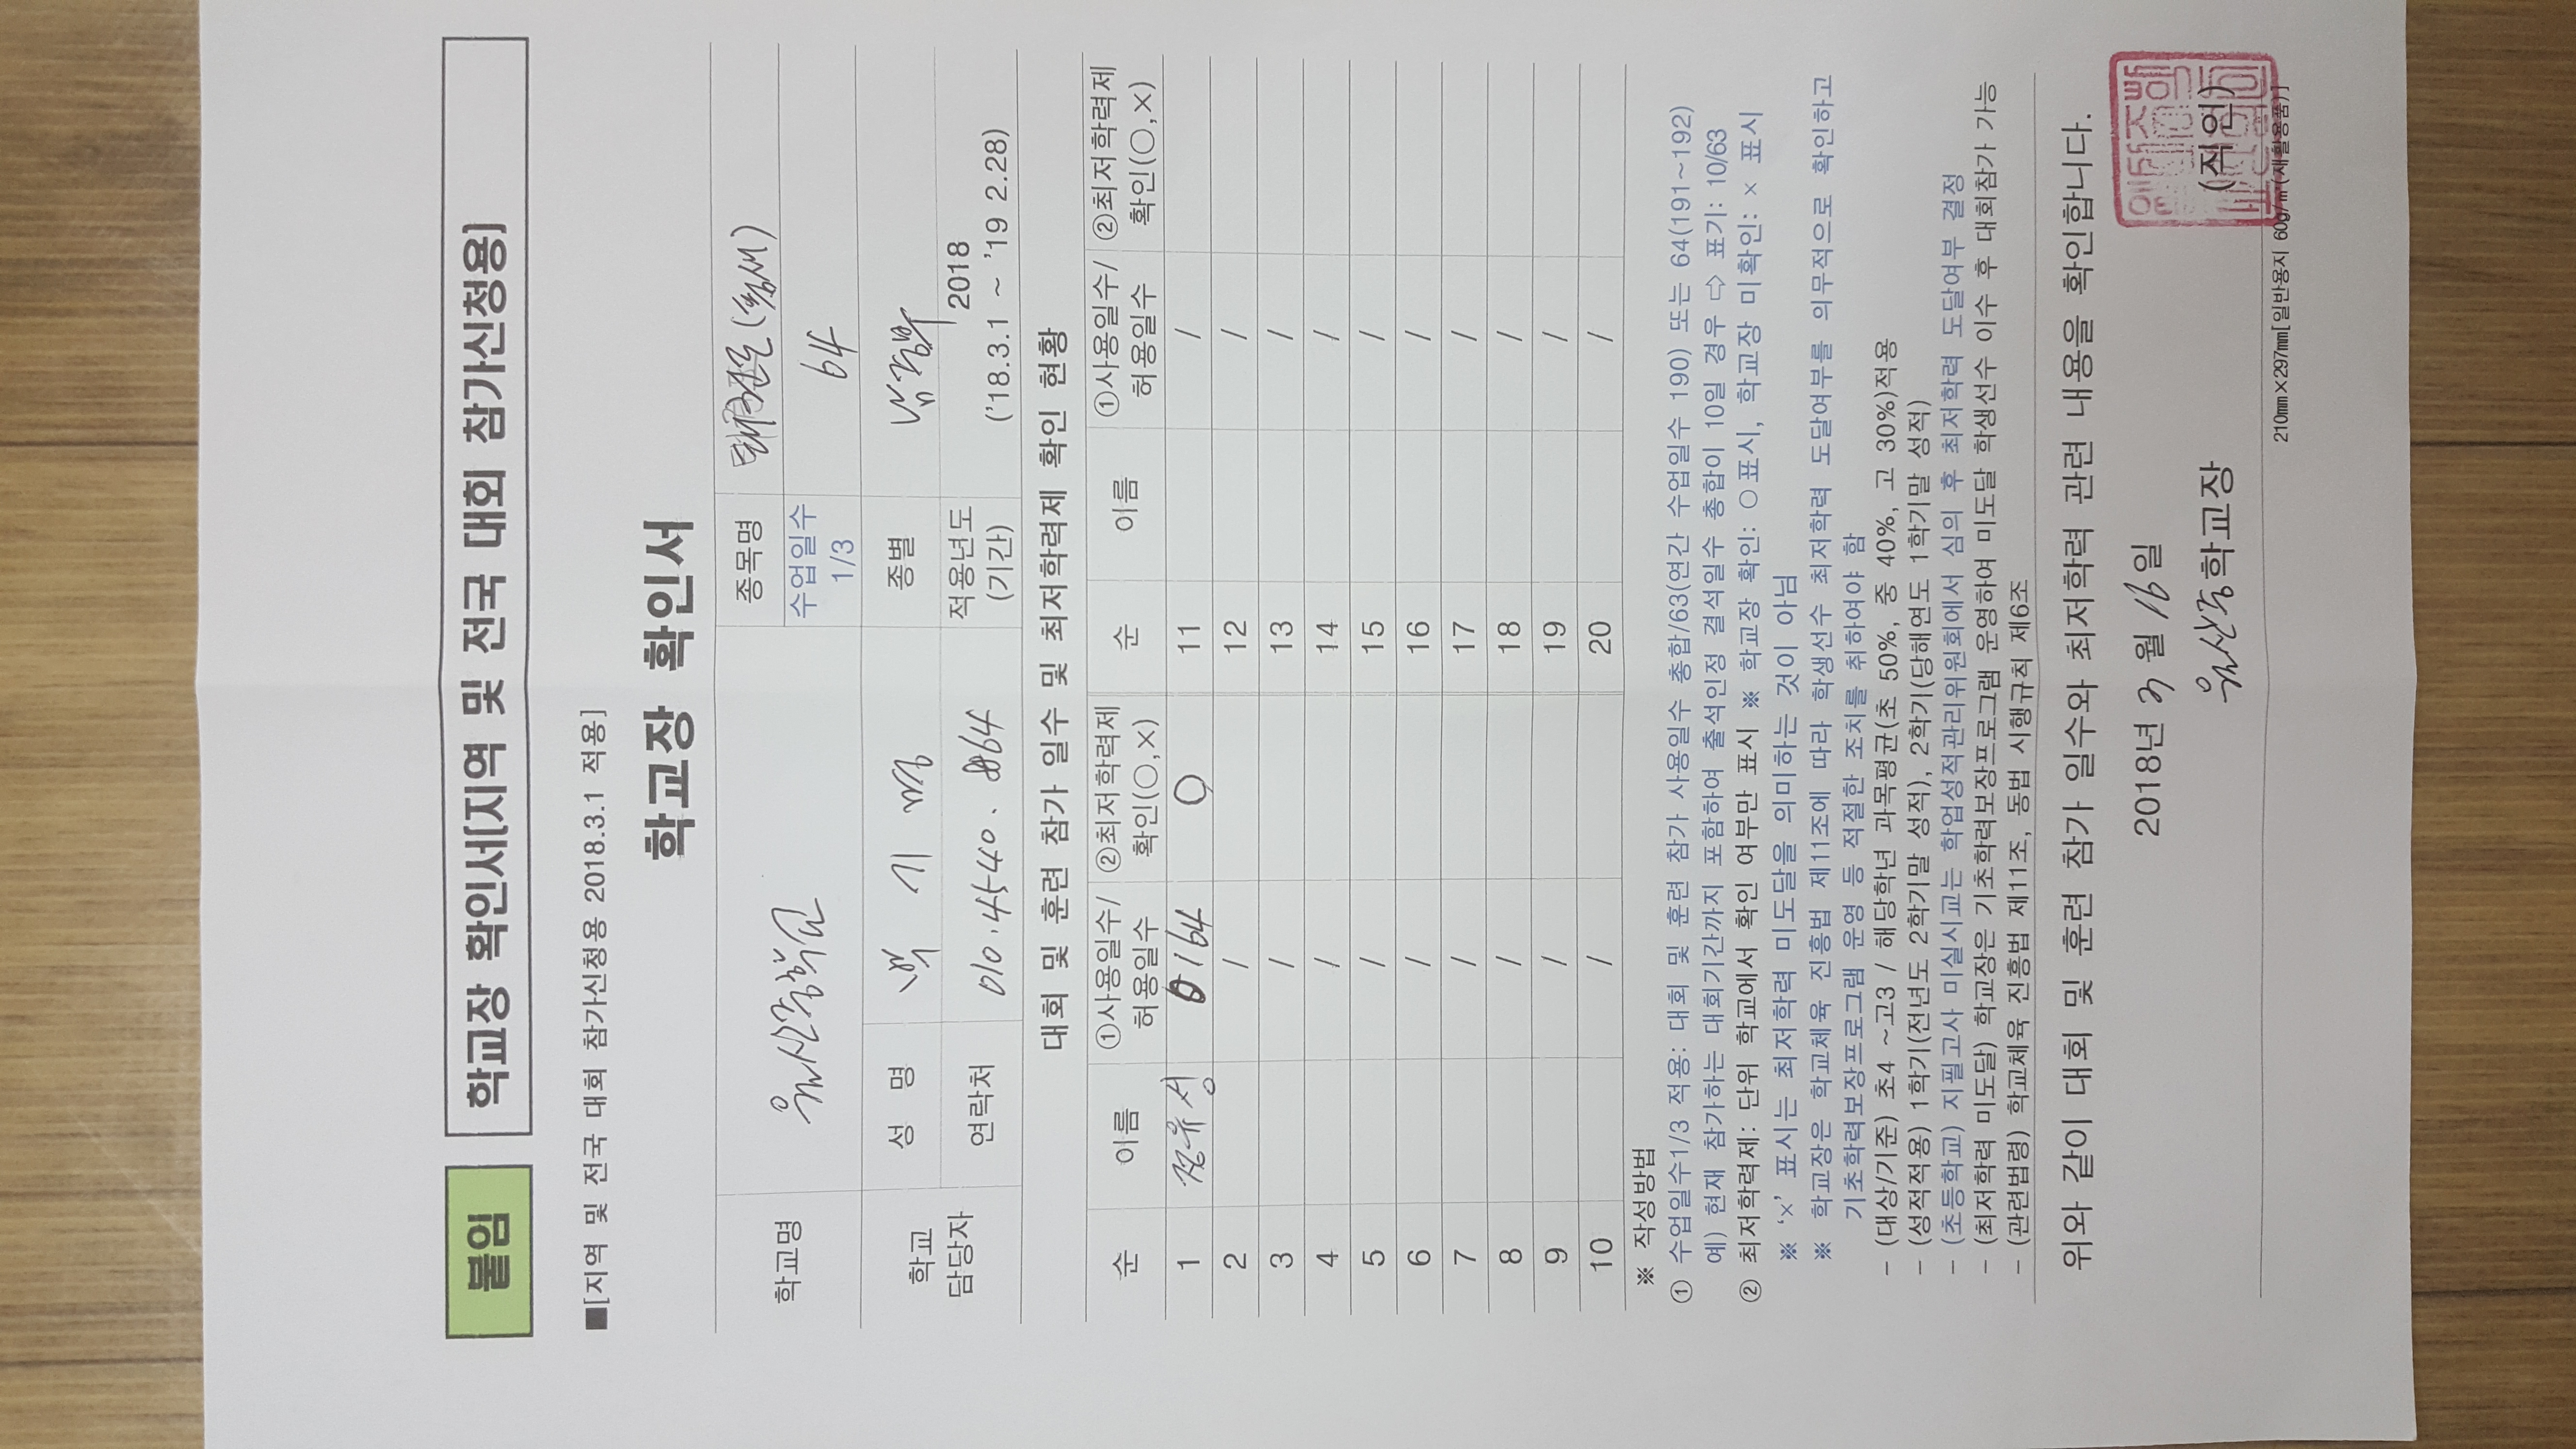 붙임 학교장 확인서[지역 및 전국 대회 참가신청용]
■[지역 및 전국 대회 참가신청용 2018.3.1 적용]
학교장 확인서
학교명 원산중학교 종목명 태권도(품새)
수업일수 1/3 64
학교 담당자 성 명 종별 남중부
연락처 적용년도 (기간) 2018 ('18.3.1 ~ '19 2.28)
대회 및 훈련 참가 일수 및 최저학력제 확인 현황
순 이름 ①사용일수/허용일수 ②최저학력제 확인(○,×) 순 이름 ①사용일수/허용일수 ②최저학력제 확인(○,×)
1 정유성 0/64 ○ 11 /
2 / 12 /
3 / 13 /
4 / 14 /
5 / 15 /
6 / 16 /
7 / 17 /
8 / 18 /
9 / 19 /
10 / 20 /
※ 작성방법
① 수업일수1/3 적용: 대회 및 훈련 참가 사용일수 총합/63(연간 수업일수 190) 또는 64(191~192)
예) 현재 참가하는 대회기간까지 포함하여 출석인정 결석일수 총합이 10일 경우 ⇨ 표기: 10/63
② 최저학력제: 단위 학교에서 확인 여부만 표시 ※ 학교장 확인: ○표시, 학교장 미확인: × 표시
※ '×' 표시는 최저학력 미도달을 의미하는 것이 아님
※ 학교장은 학교체육 진흥법 제11조에 따라 학생선수 최저학력 도달여부를 의무적으로 확인하고
기초학력보장프로그램 운영 등 적절한 조치를 취하여야 함
- (대상/기준) 초4 ~고3 / 해당학년 과목평균(초 50%, 중 40%, 고 30%)적용
- (성적적용) 1학기(전년도 2학기말 성적), 2학기(당해연도 1학기말 성적)
- (초등학교) 지필고사 미실시교는 학업성적관리위원회에서 심의 후 최저학력 도달여부 결정
- (최저학력 미도달) 학교장은 기초학력보장프로그램 운영하여 미도달 학생선수 이수 후 대회참가 가능
- (관련법령) 학교체육 진흥법 제11조, 동법 시행규칙 제6조
위와 같이 대회 및 훈련 참가 일수와 최저학력 관련 내용을 확인합니다.
2018년 3월 16일
원산중학교장 (직인)
210㎜×297㎜[일반용지 60g/㎡(재활용품)]